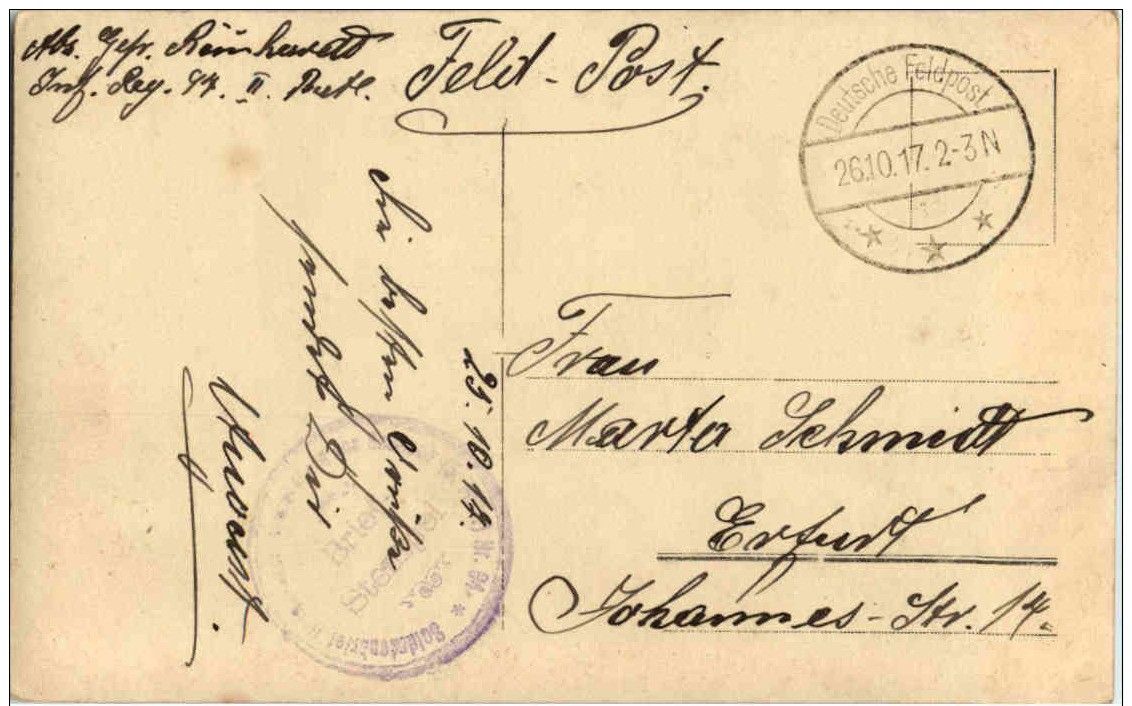 Abs. Gefr. Reinhardt
Inf. Reg. 94. II. Batl.
Feld-Post.
Deutsche Feldpost
26.10.17. 2-3 N
25.10.17.
Die besten Grüße
sendet Dir
Frau
Marta Schmidt
Erfurt
Johannes-Str. 14.
Brief
Stempel
Nr. 94.
Soldatenbrief